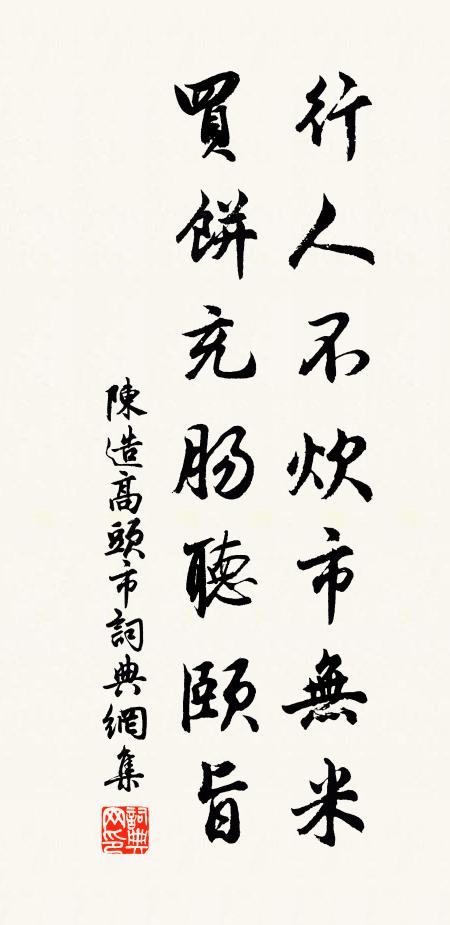 行人不炊市無米
買餅充肠聽頤旨
陳造高頭市詞典網集
詞典网印